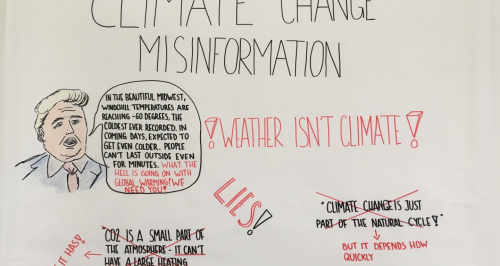 CLIMATE CHANGE
MISINFORMATION
IN THE BEAUTIFUL MIDWEST,
WINDCHILL TEMPERATURES ARE
REACHING -60 DEGREES, THE
COLDEST EVER RECORDED. IN
COMING DAYS, EXPECTED TO
GET EVEN COLDER. PEOPLE
CAN'T LAST OUTSIDE EVEN
FOR MINUTES. WHAT THE
HELL IS GOING ON WITH
GLOBAL WARMING? WE
NEED YOU!
!WEATHER ISN'T CLIMATE!
LIES!
"CLIMATE CHANGE IS JUST
PART OF THE NATURAL CYCLE!"
BUT IT DEPENDS HOW
QUICKLY
"CO2 IS A SMALL PART OF
THE ATMOSPHERE - IT CAN'T
HAVE A LARGE HEATING
IT HAS!